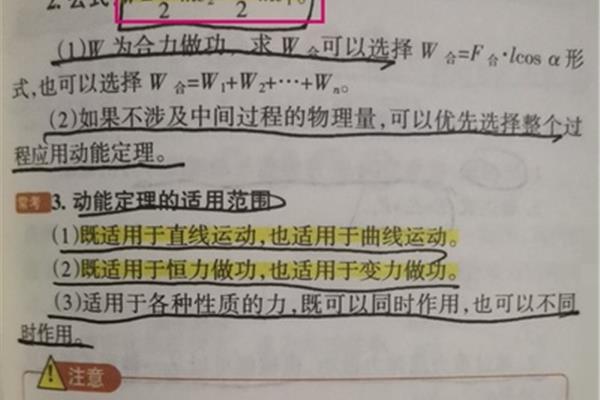 2. 公式
(1)W 为合力做功，求 W 合可以选择 W 合=F 合·lcos α 形
式，也可以选择 W 合=W₁+W₂+…+Wₙ。
(2)如果不涉及中间过程的物理量，可以优先选择整个过
程应用动能定理。
常考 3. 动能定理的适用范围
(1)既适用于直线运动，也适用于曲线运动。
(2)既适用于恒力做功，也适用于变力做功。
(3)适用于各种性质的力，既可以同时作用，也可以不同
时作用。
注意